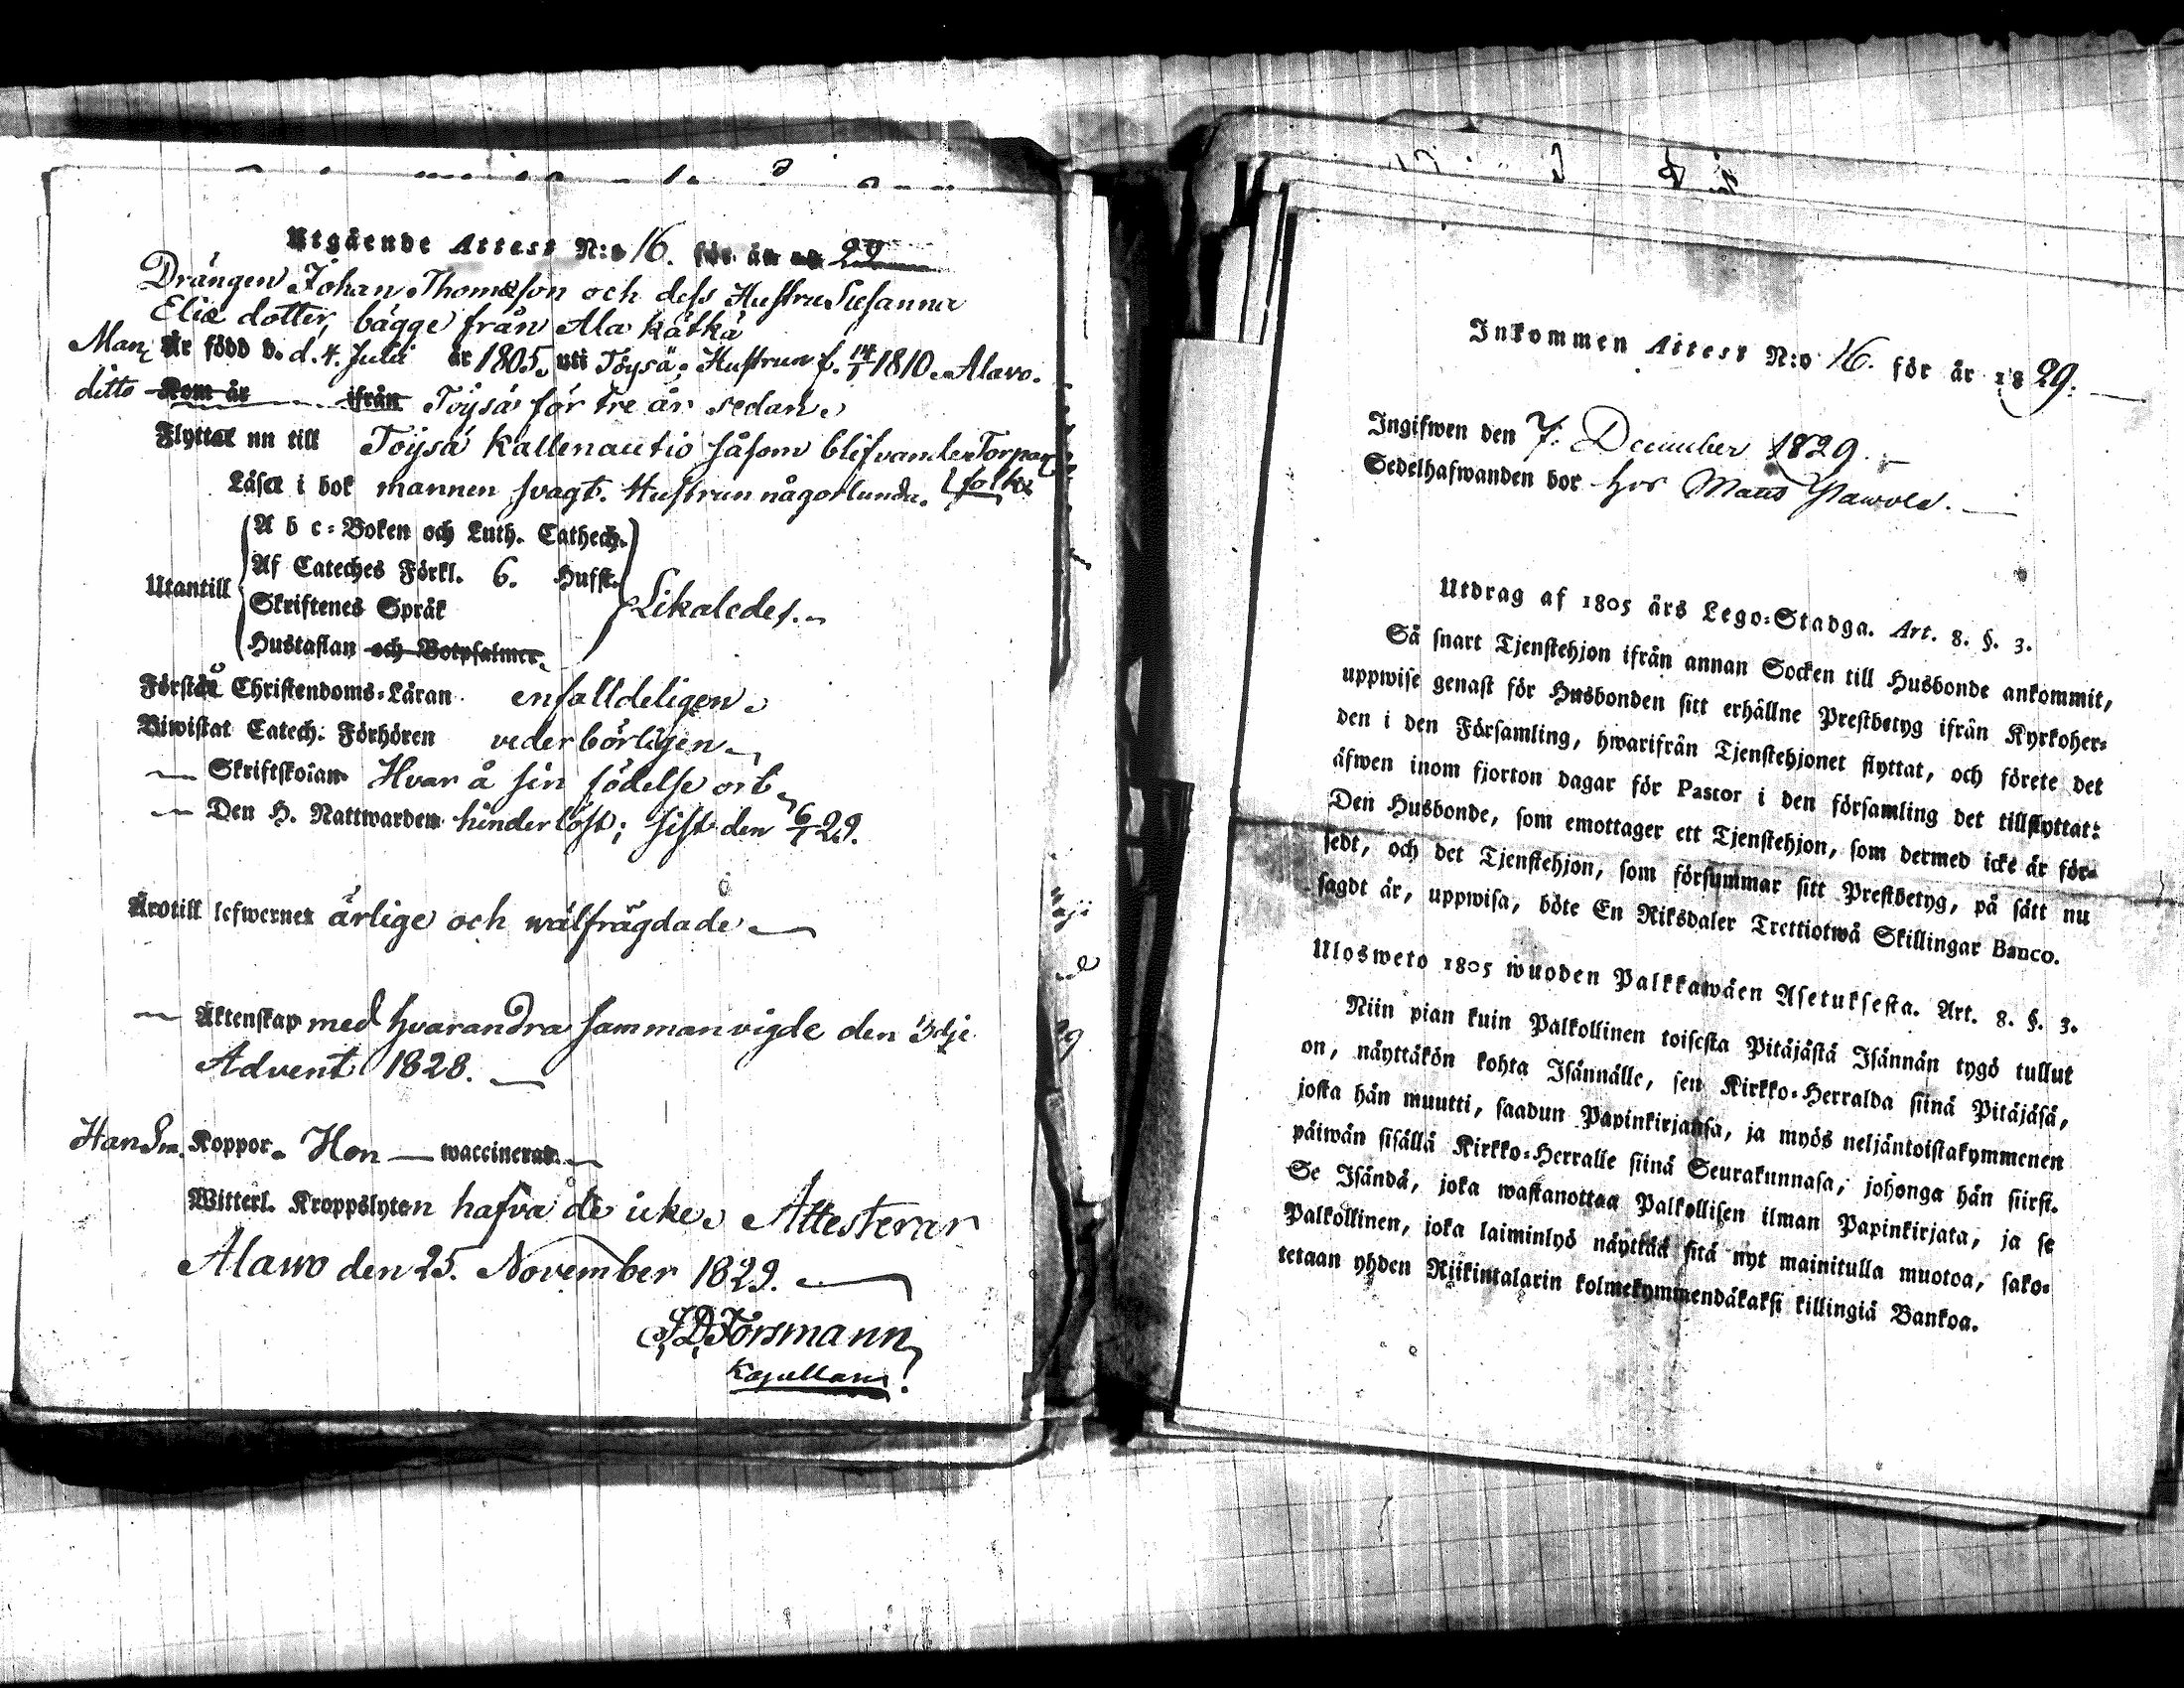 Utgående Attest N:o 16. för år 29
Drängen Johan Thomasson och dess Hustru Susanna
Eliæ dotter, bägge från Ala kätkä
Man Är född d. d. 4. Julii år 1805, uti Töysä; Hustrun f. 14/1 1810. Alavo.
ditto Kom år ifrån Töysä för tre år sedan.
Flyttat nu till Töysä Kallenautio såsom blifvande Torpar
folk
Läser i bok mannen svagt. Hustrun någorlunda.
A b c-Boken och Luth. Cathech.
Af Cateches Förkl. 6. Hufst.
Utantill Likaledes.
Skriftenes Språk
Hustaflan och Botpsalmer.
Förstå Christendoms-Läran enfalldeligen.
Biwistat Catech. Förhören vederbörligen
— Skriftskolan Hvar å sin födelse ort
— Den H. Nattwarden hinderlöst; sist den 6/1 29.
Äro till lefwernet ärlige och wälfrägdade —
— Äktenskap med hvarandra sammanvigde den 3dje
Advent 1828. —
Han Sm. Koppor. Hon — waccinerad. —
Witterl. Kroppslyten hafva de icke. Attesterar
Alawo den 25. November 1829. —
J D Forsmann,
Kapellan.
Inkommen Attest N:o 16. för år 1829. —
Ingifwen den 7. December 1829. —
Sedelhafwanden bor hos Matts —
Utdrag af 1805 års Lego-Stadga. Art. 8. §. 3.
Så snart Tjenstehjon ifrån annan Socken till Husbonde ankommit,
uppwise genast för Husbonden sitt erhållne Prestbetyg ifrån Kyrkoher-
den i den Församling, hwarifrån Tjenstehjonet flyttat, och förete det
äfwen inom fjorton dagar för Pastor i den församling det tillflyttat:
Den Husbonde, som emottager ett Tjenstehjon, som dermed icke är för-
sedt, och det Tjenstehjon, som försummar sitt Prestbetyg, på sätt nu
sagdt är, uppwisa, böte En Riksdaler Trettiotwå Skillingar Banco.
Ulosweto 1805 wuoden Palkkawäen Asetuksesta. Art. 8. §. 3.
Niin pian kuin Palkollinen toisesta Pitäjästä Isännän tygö tullut
on, näyttäkön kohta Isännälle, sen Kirkko-Herralda siinä Pitäjäsä,
josta hän muutti, saadun Papinkirjansa, ja myös neljäntoistakymmenen
päiwän sisällä Kirkko-Herralle siinä Seurakunnasa, johonga hän siirst.
Se Isändä, joka wastanottaa Palkollisen ilman Papinkirjata, ja se
Palkollinen, joka laiminlyö näyttää sitä nyt mainitulla muotoa, sako-
tetaan yhden Riikintalarin kolmekymmendäkaksi killingiä Bankoa.